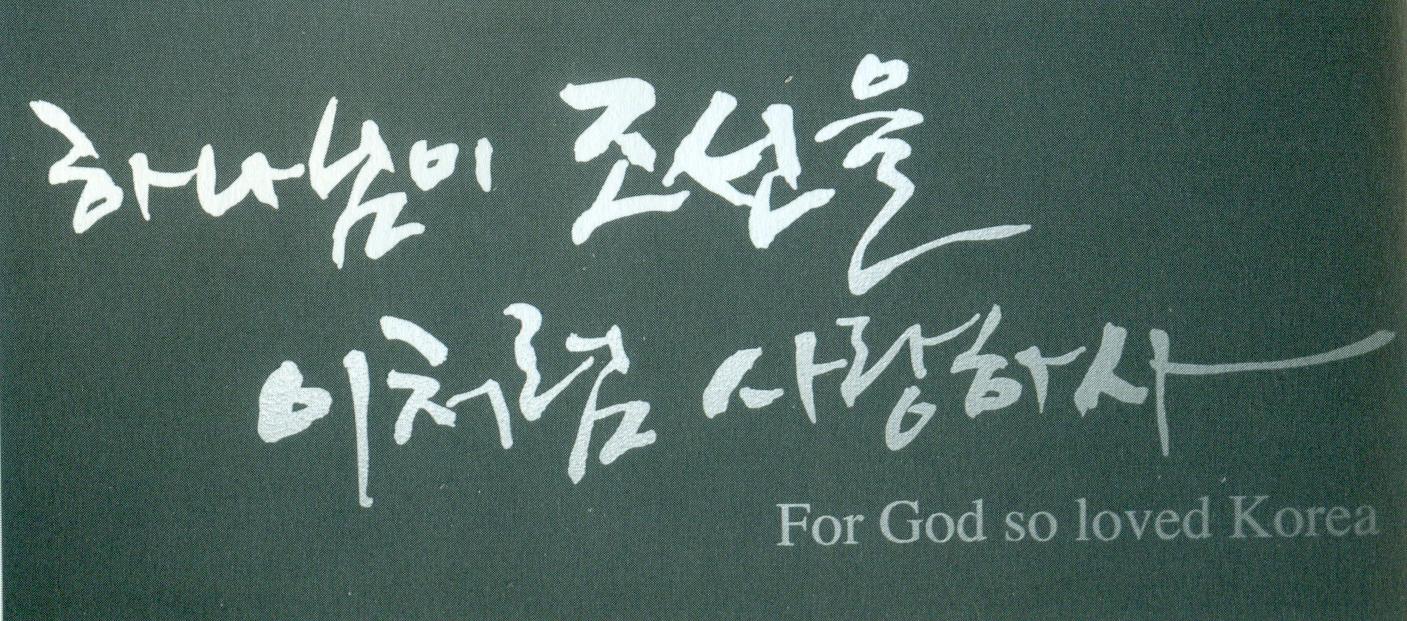 하나님이 조선을
이처럼 사랑하사
For God so loved Korea